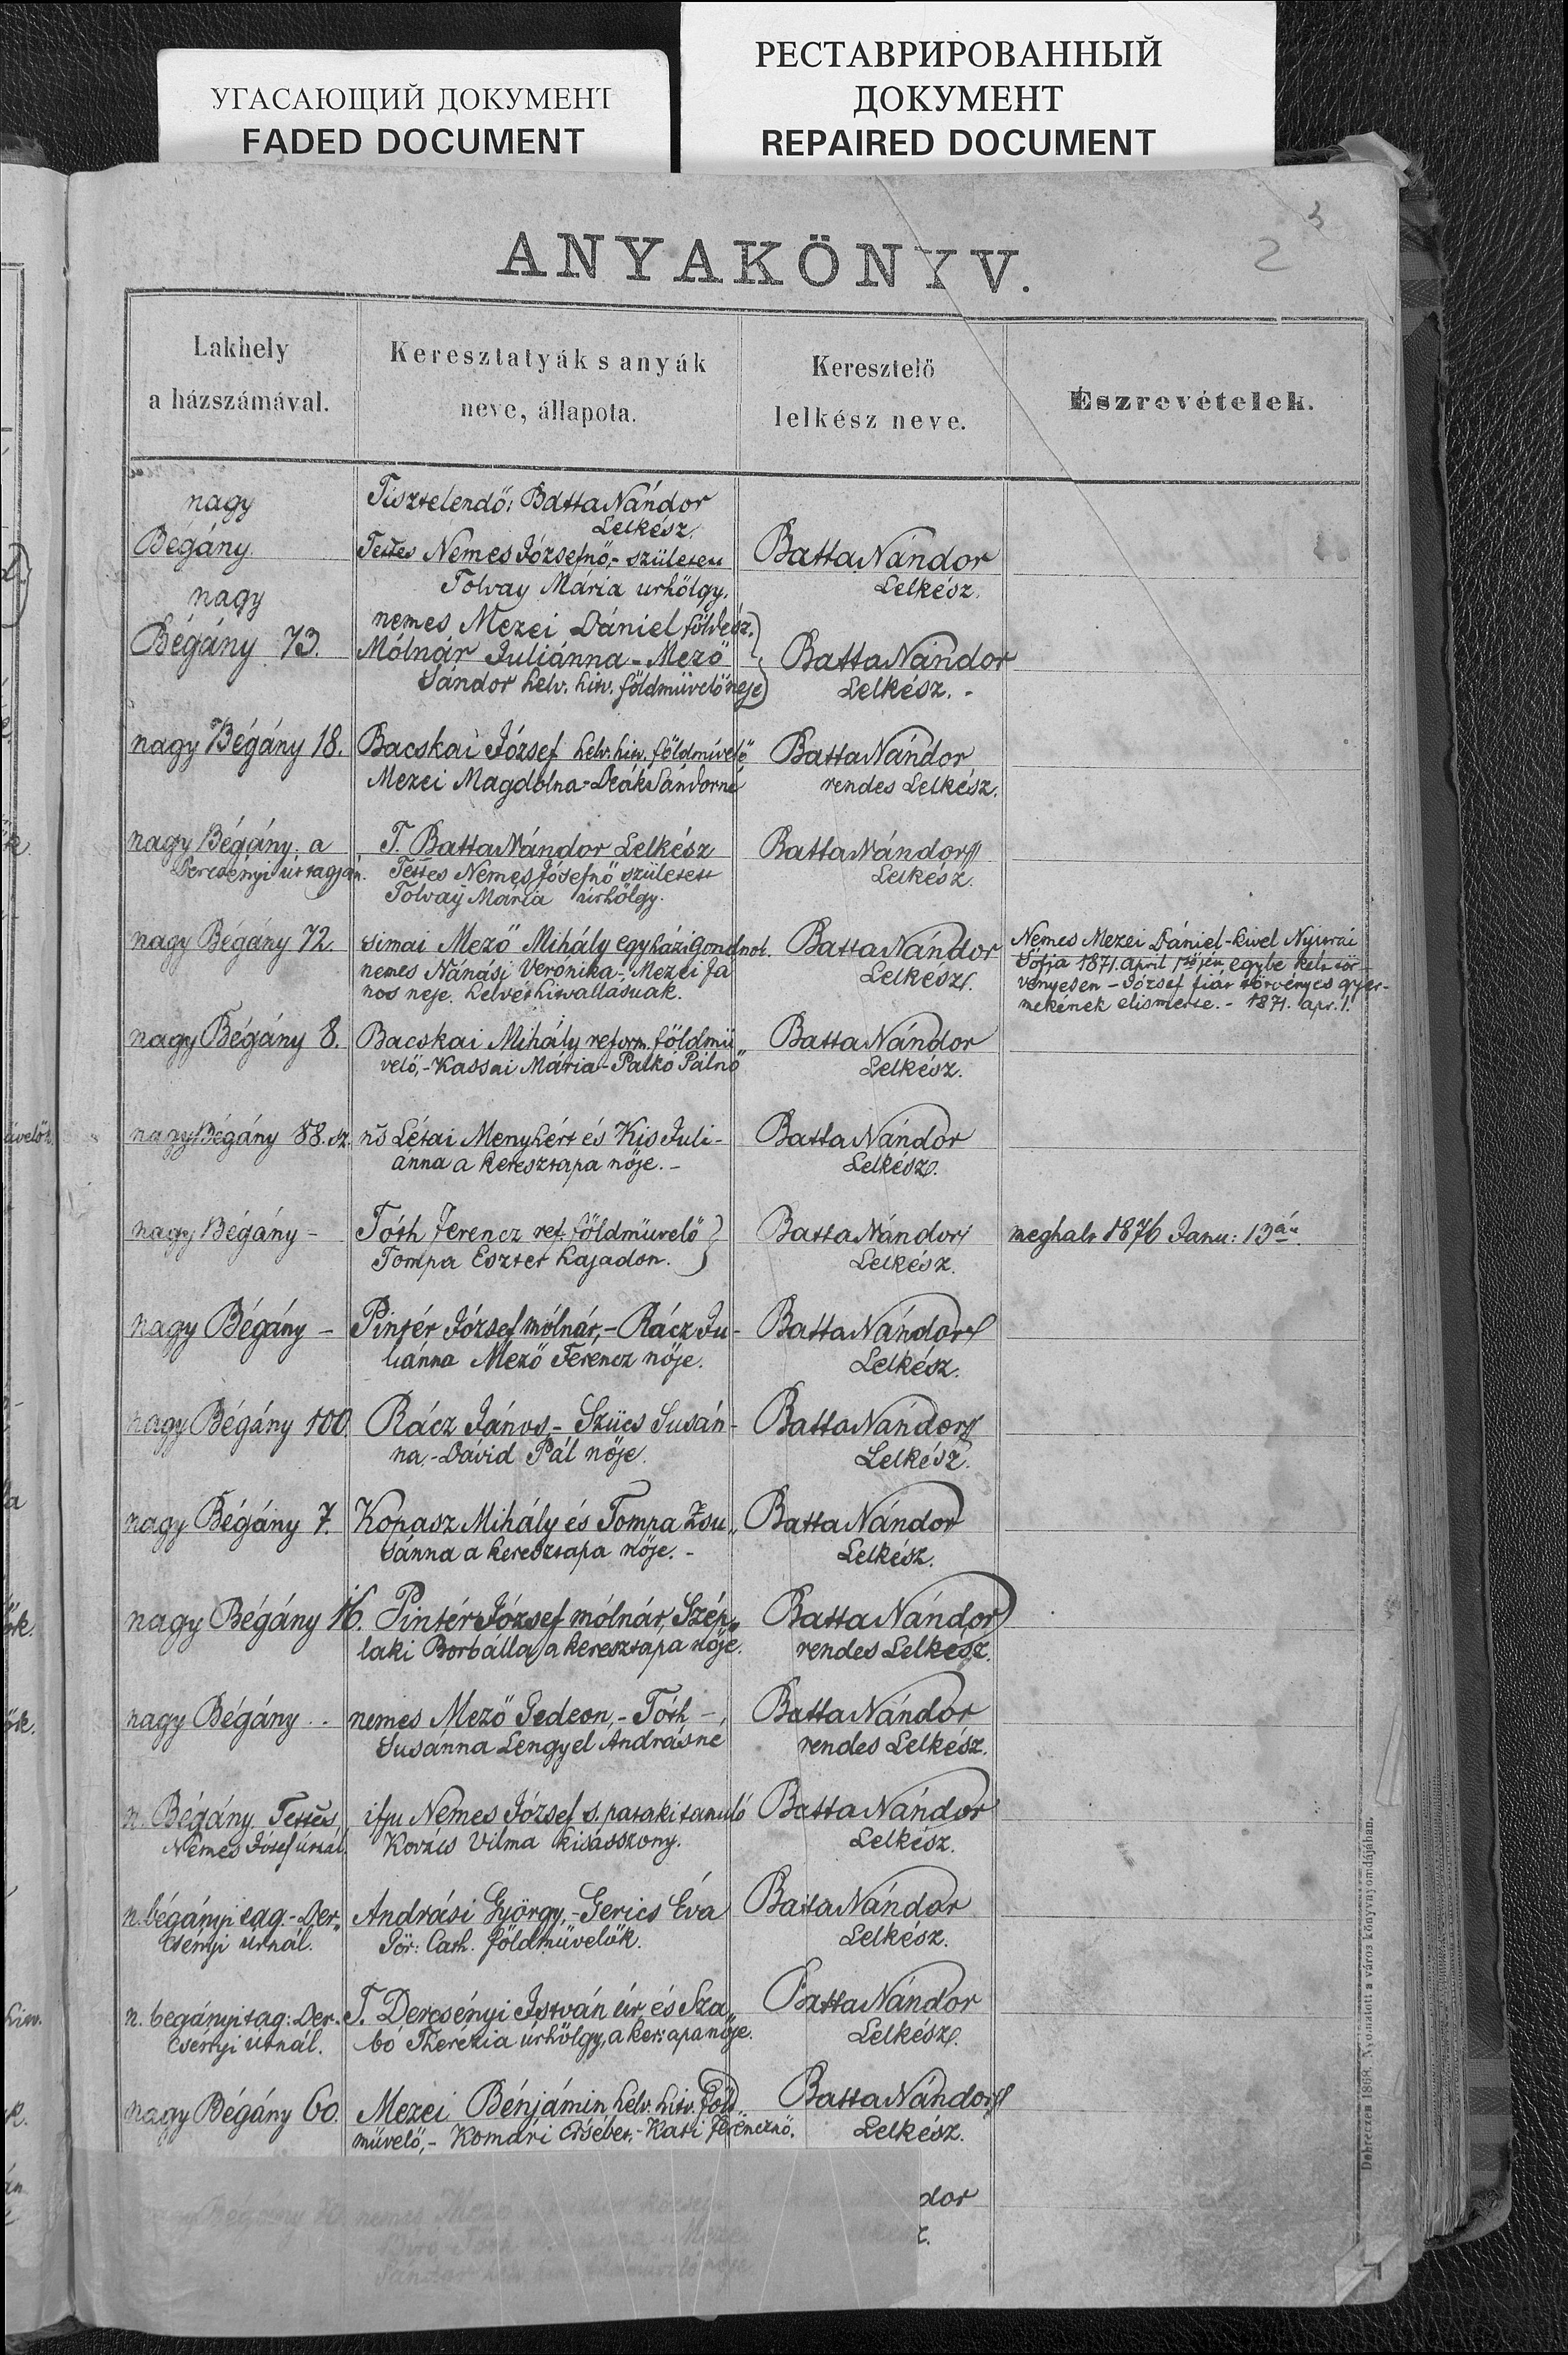 УГАСАЮЩИЙ ДОКУМЕНТ
FADED DOCUMENT
РЕСТАВРИРОВАННЫЙ
ДОКУМЕНТ
REPAIRED DOCUMENT
3
2
ANYAKÖNYV.
Lakhely
a házszámával.
Keresztatyák s anyák
neve, állapota.
Keresztelő
lelkész neve.
Észrevételek.
nagy
Bégány.
Tisztelendő: Batta Nándor
Lelkész.
Tettes Nemes Józsefnő,- született
Tolvay Mária urhölgy.
Batta Nándor
Lelkész.
nagy
Bégány 73.
nemes Mezei Dániel földész.
Mólnár Juliánna - Mező
Sándor helv. hitv. földmüvelő neje
Batta Nándor
Lelkész. -
nagy Bégány 18.
Bacskai József helv. hitv. földmívelő
Mezei Magdolna - Deák Sándorné
Batta Nándor
rendes Lelkész.
nagy Bégány. a
Dercsényi úr tagján.
T. Batta Nándor Lelkész
Tettes Nemes Jósefnő született
Tolvaÿ Mária úrhölgy.
Batta Nándor
Lelkész.
nagy Bégány 72.
simai Mező Mihály egyházi gondnok.
nemes Nánási Verónika - Mezei Já
nos neje. helvét hitvallásuak.
Batta Nándor
Lelkész.
Nemes Mezei Dániel - kivel Nyitrai
Sófja 1871. april 1ső jén egybe kelt tör-
vényesen - József fiát törvényes gyer-
mekének elismerte. - 1871. apr. 1.
nagy Bégány 8.
Bacskai Mihály reform. földmü
velő, - Kassai Mária - Palkó Pálnő
Batta Nándor
Lelkész.
nagy Bégány 88. sz.
ns Létai Menyhért és Kis Juli-
ánna a keresztapa nője. -
Batta Nándor
Lelkész.
nagy Bégány -
Tóth Ferencz ref. földmüvelő
Tompa Eszter hajadon.
Batta Nándor
Lelkész.
meghalt 1876 Janu: 13án.
nagy Bégány -
Pintér József mólnár, - Rácz Ju-
liánna Mező Ferencz nője.
Batta Nándor
Lelkész.
nagy Bégány 100.
Rácz János, - Szücs Susán-
na, - Dávid Pál nője.
Batta Nándor
Lelkész.
nagy Bégány 7.
Kopasz Mihály és Tompa Zsu„
sánna a keresztapa nője. -
Batta Nándor
Lelkész.
nagy Bégány 16.
Pintér József mólnár, Szép„
laki Borbálla, a keresztapa nője.
Batta Nándor
rendes Lelkész.
nagy Bégány . .
nemes Mező Gedeon, - Tóth -
Susánna Lengyel Andrásné
Batta Nándor
rendes Lelkész.
n. Bégány. Tettes,
Nemes Jósef úrnál.
ifju Nemes József s. pataki tanuló
Kovács Vilma kisasszony.
Batta Nándor
Lelkész.
n. bégányi tag. - Der„
csényi úrnál.
Andrási György, - Gerics Éva
Gör: Cath. földmüvelők.
Batta Nándor
Lelkész.
n. begányi tag: Der-
csényi úrnál.
T. Dercsényi István úr, és Sza„
bó Therézia úrhölgy, a ker: apa nője.
Batta Nándor
Lelkész.
nagy Bégány 60.
Mezei Bénjámin helv. hitv. föld„
müvelő, - Komári Ersébet, - Kati Ferencznő.
Batta Nándor
Lelkész.
nemes
dor
z.
Debreczen 1868. Nyomatott a város könyvnyomdájában.